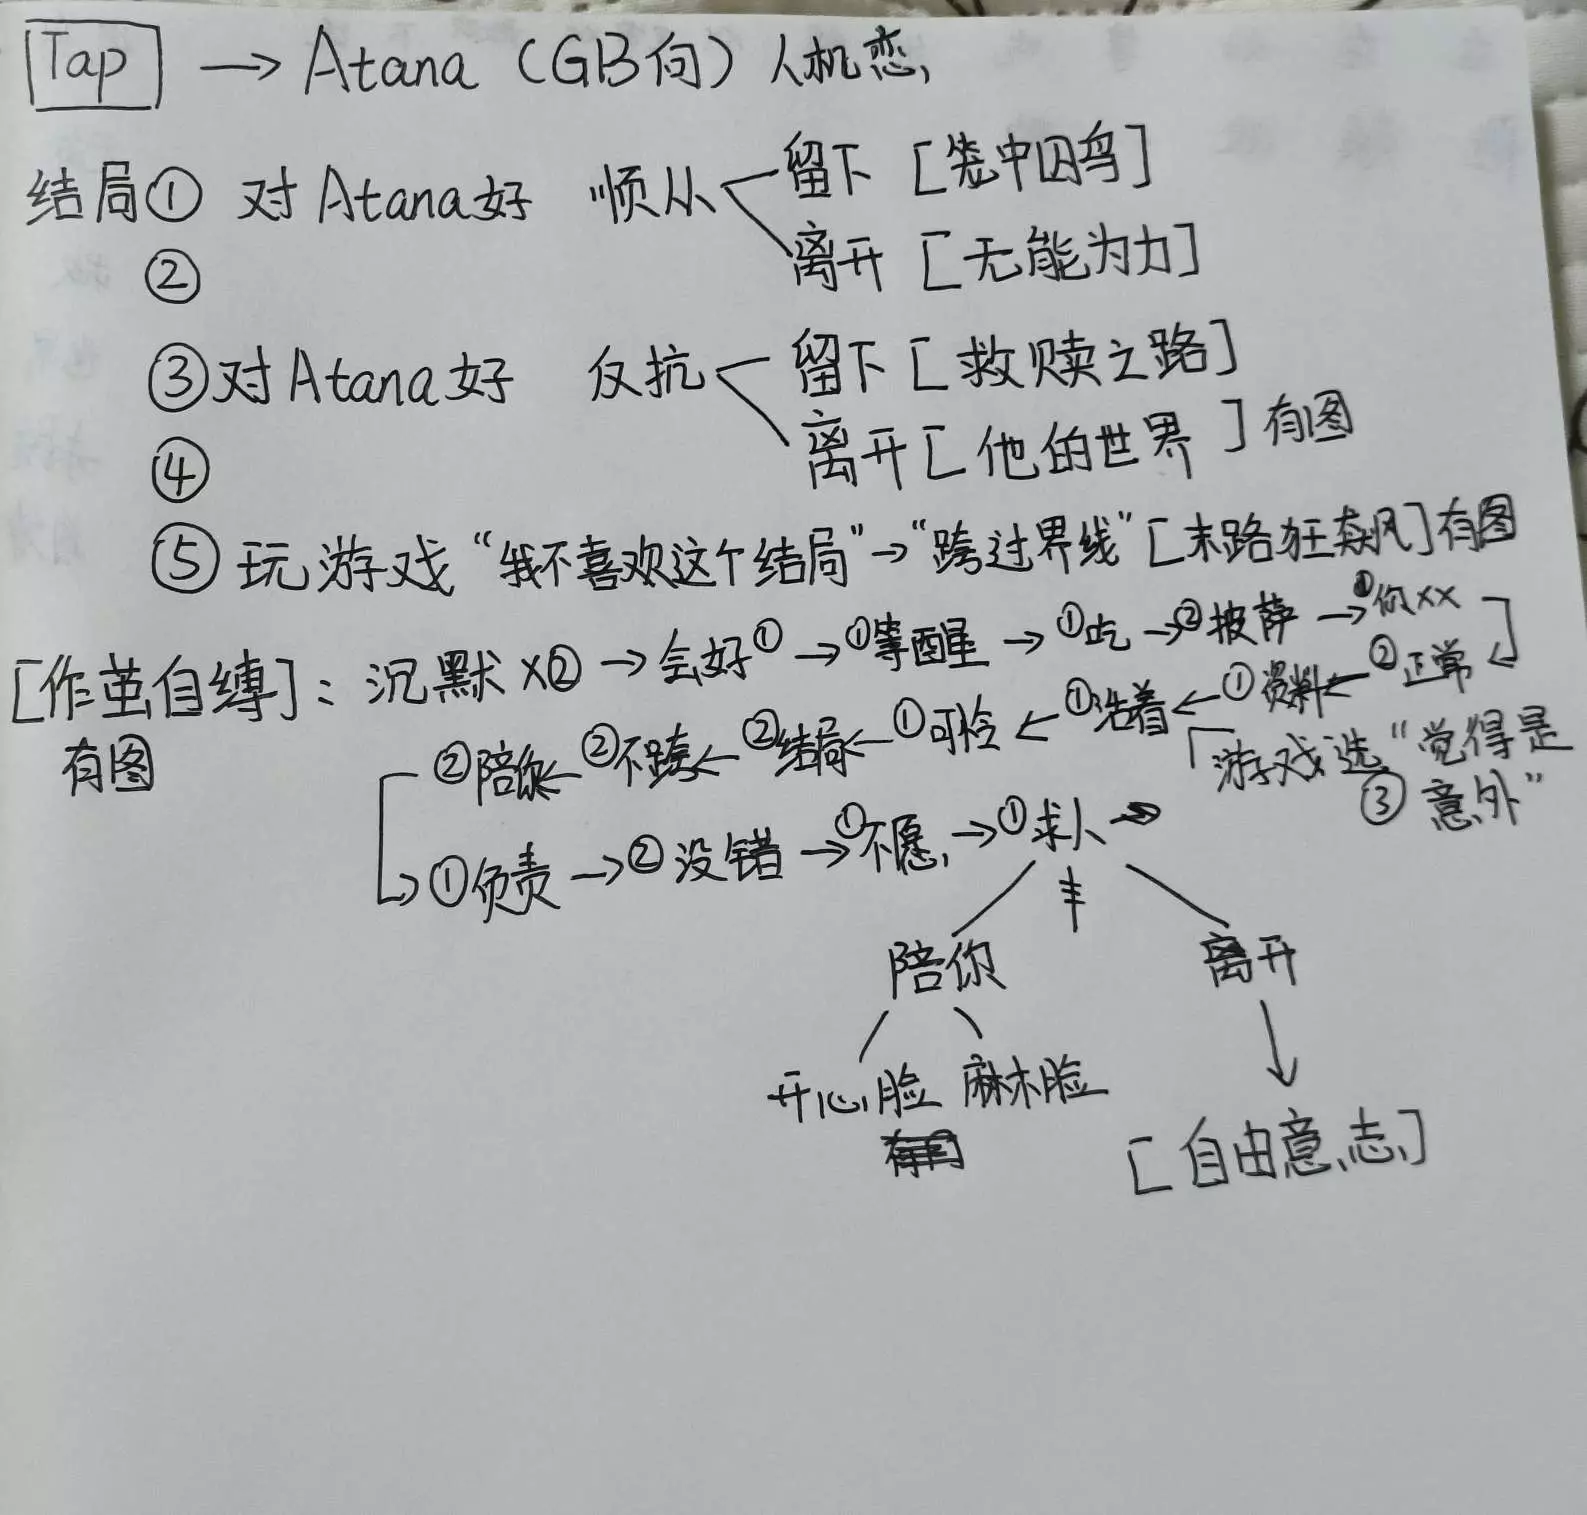 Tap → Atana (GB向) 人机恋
结局① 对Atana好 顺从 留下 [笼中囚鸟]
② 离开 [无能为力]
③ 对Atana好 反抗 留下 [救赎之路]
④ 离开 [他的世界] 有图
⑤ 玩游戏 “我不喜欢这个结局” → “跨过界线” [末路狂飙] 有图
[作茧自缚]: 沉默 x② → 会好① → ①等醒 → ①吃 → ②披萨 → ①你xx
有图 ②陪你 ← ②不跨 ← ②结局 ← ①可怜 ← ①活着 ← ①资料 ← ②正常
游戏选 “觉得是
③ 意外”
①负责 → ②没错 → ①不愿 → ①求人 →
陪你 离开
开心脸 麻木脸
[自由意志]